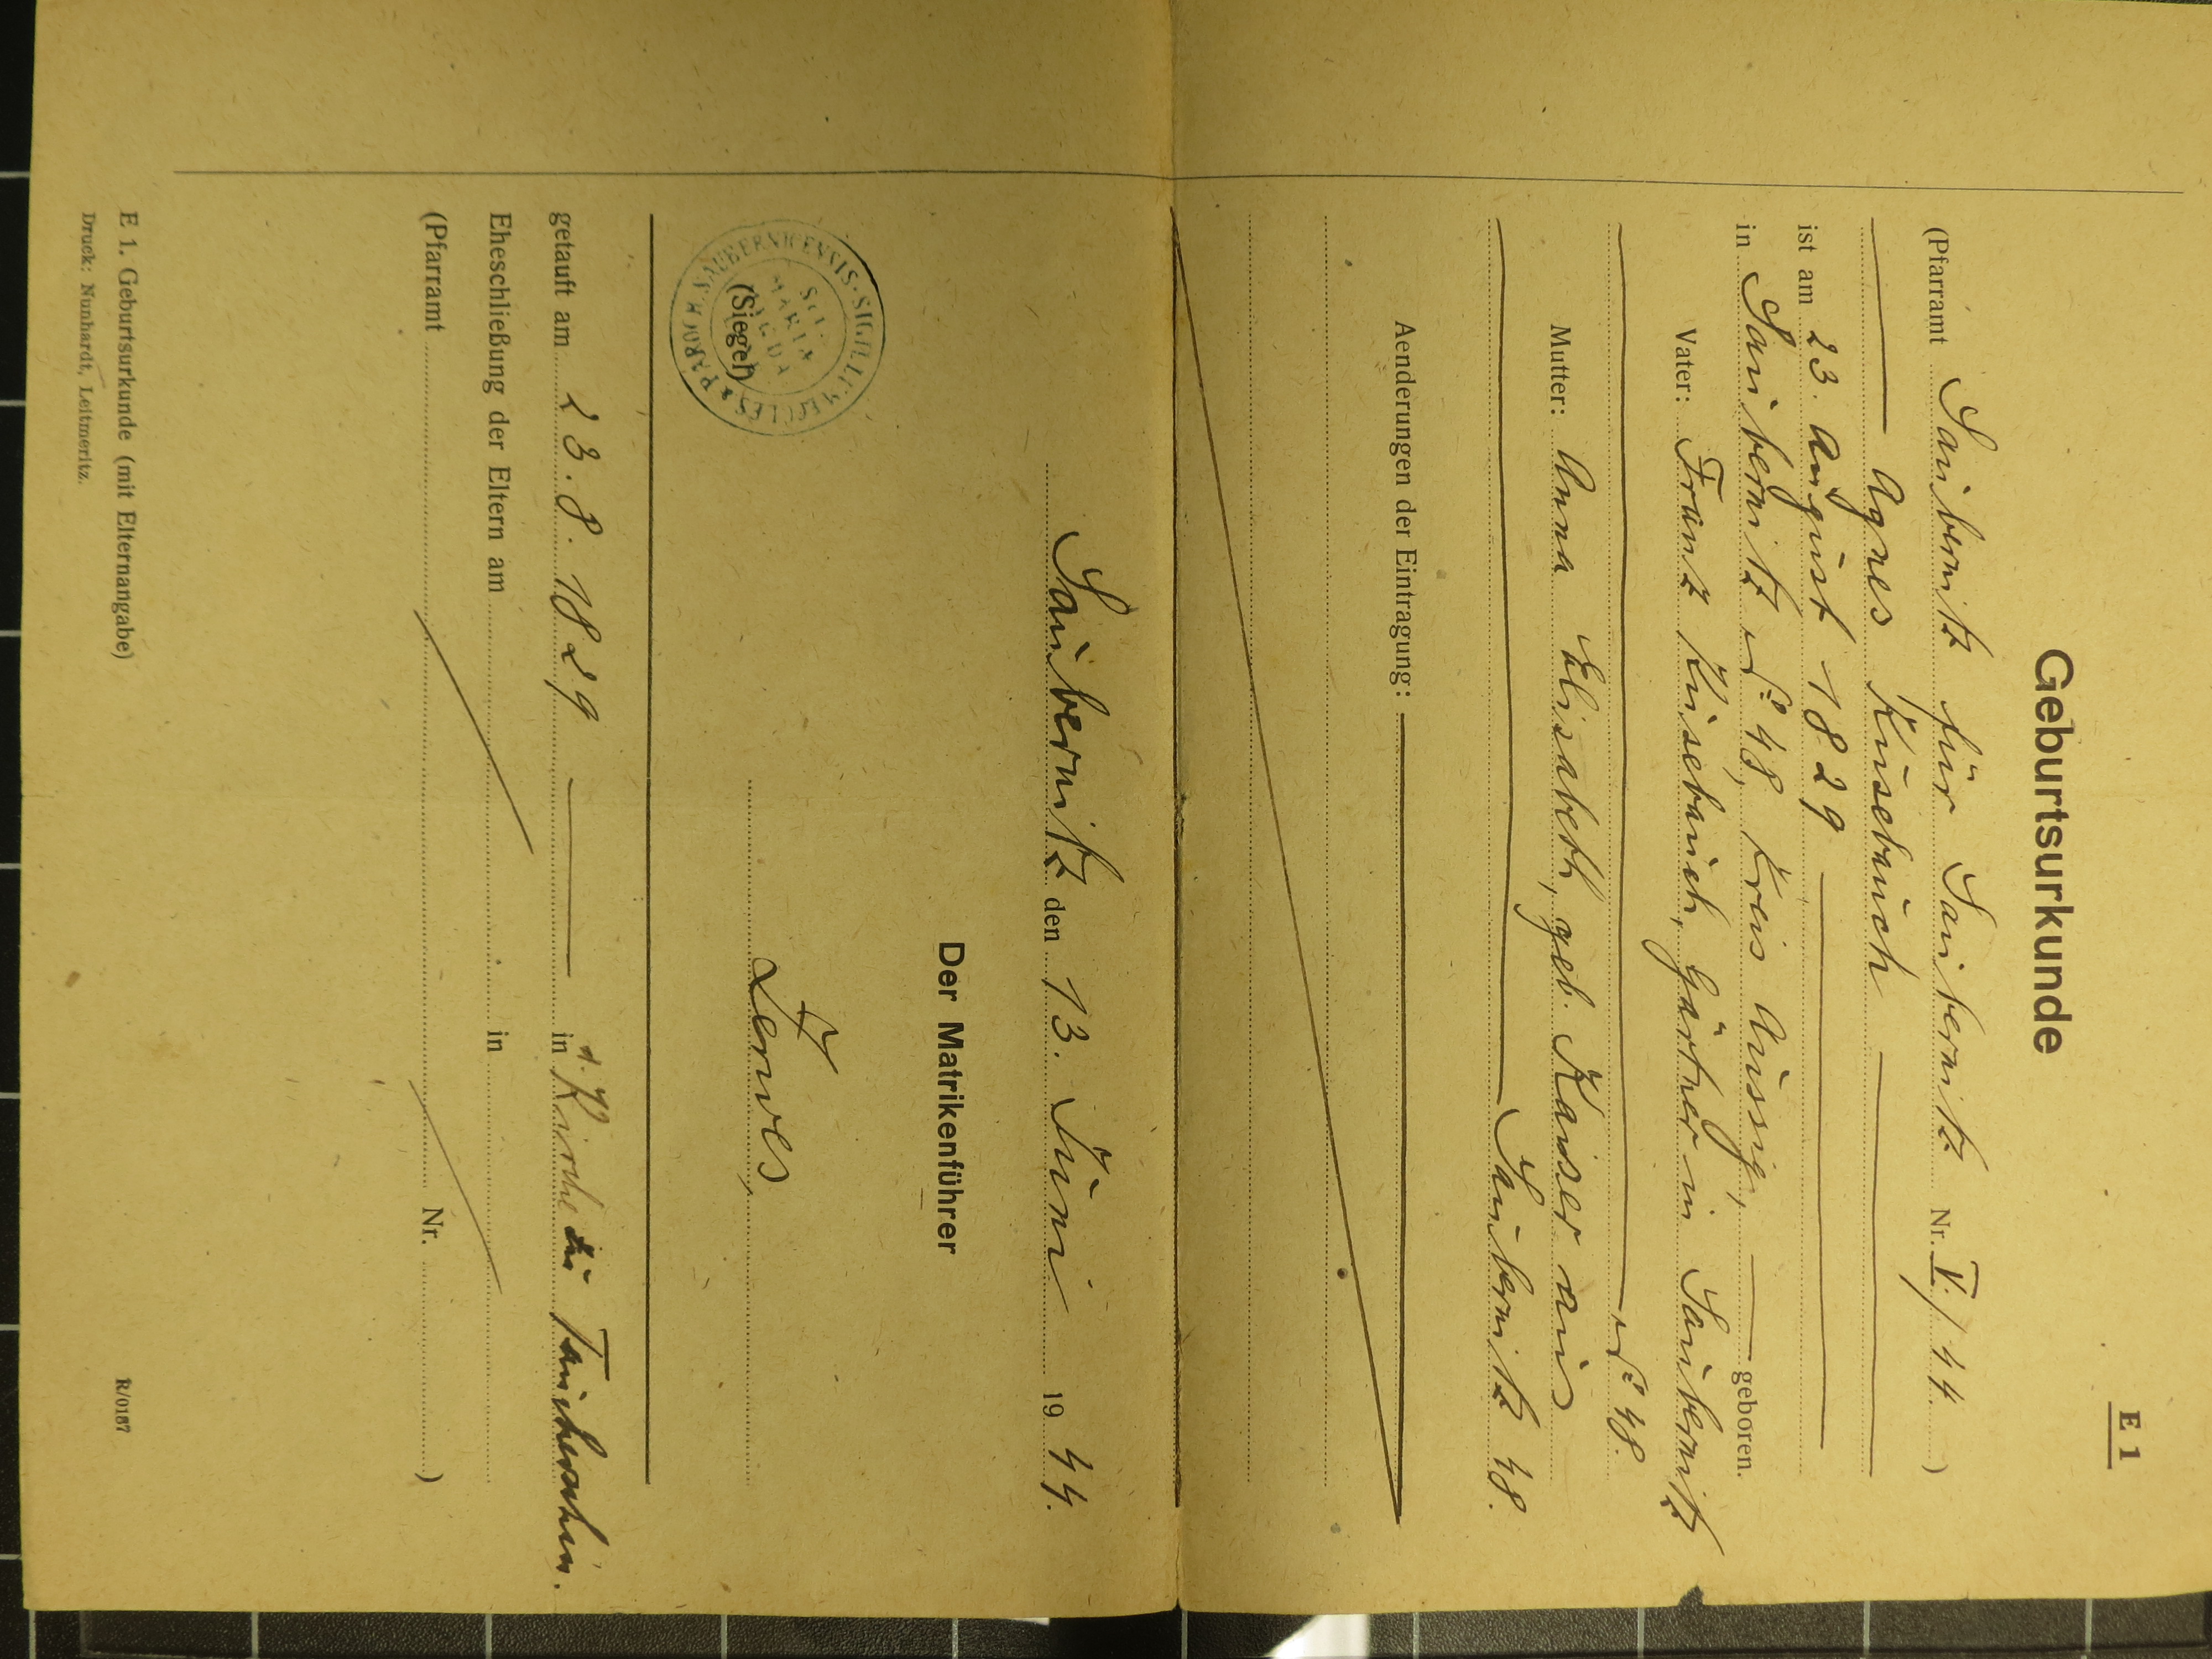 E 1
Geburtsurkunde
(Pfarramt Saubernitz für Saubernitz Nr. V./44.)
Agnes Kusebauch
ist am 23. August 1829
in Saubernitz No 48, Kreis Aussig, geboren.
Vater: Franz Kusebauch, Gärtner in Saubernitz
No 48.
Mutter: Anna Elisabeth, geb. Kaiser aus
Saubernitz 48.
Aenderungen der Eintragung:
Saubernitz den 13. Juni 1944.
Der Matrikenführer
SIGILLUM ECCLES & PAROCH. SAUBERNICENSIS
Sct. MARIA MAGDA
(Siegel)
Zerwes,
getauft am 23.8.1829 in d. Kirche zu Taucherschin.
Eheschließung der Eltern am in
(Pfarramt Nr. )
E 1. Geburtsurkunde (mit Elternangabe)
R/0187
Druck: Nunhardt, Leitmeritz.